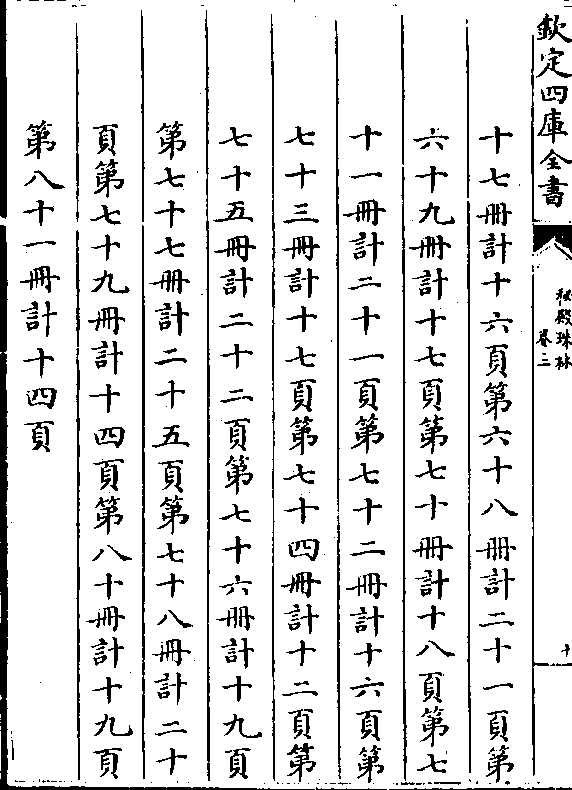 欽定四庫全書
秘殿珠林
卷三
十
十七冊計十六頁第六十八冊計二十一頁第
六十九冊計十七頁第七十冊計十八頁第七
十一冊計二十一頁第七十二冊計十六頁第
七十三冊計十七頁第七十四冊計十二頁第
七十五冊計二十二頁第七十六冊計十九頁
第七十七冊計二十五頁第七十八冊計二十
頁第七十九冊計十四頁第八十冊計十九頁
第八十一冊計十四頁